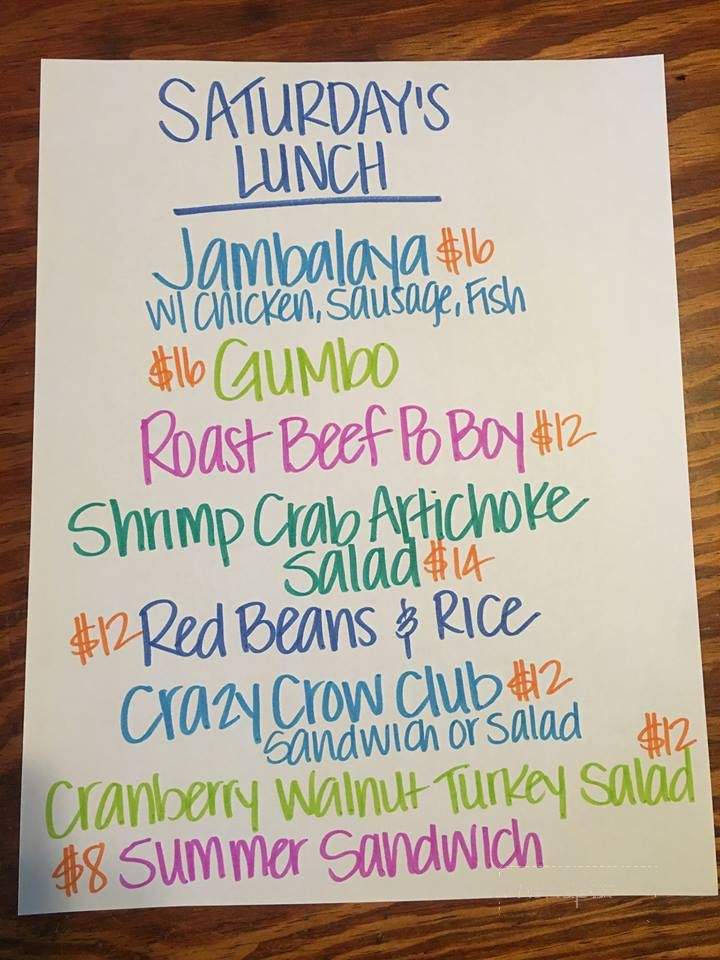 SATURDAY'S
LUNCH
Jambalaya $16
w/ chicken, sausage, Fish
$16 GUMBO
Roast Beef Po Boy $12
Shrimp Crab Artichoke
Salad $14
$12 Red Beans & RICE
Crazy Crow Club $12
Sandwich or Salad
$12
Cranberry Walnut Turkey Salad
$8 Summer Sandwich